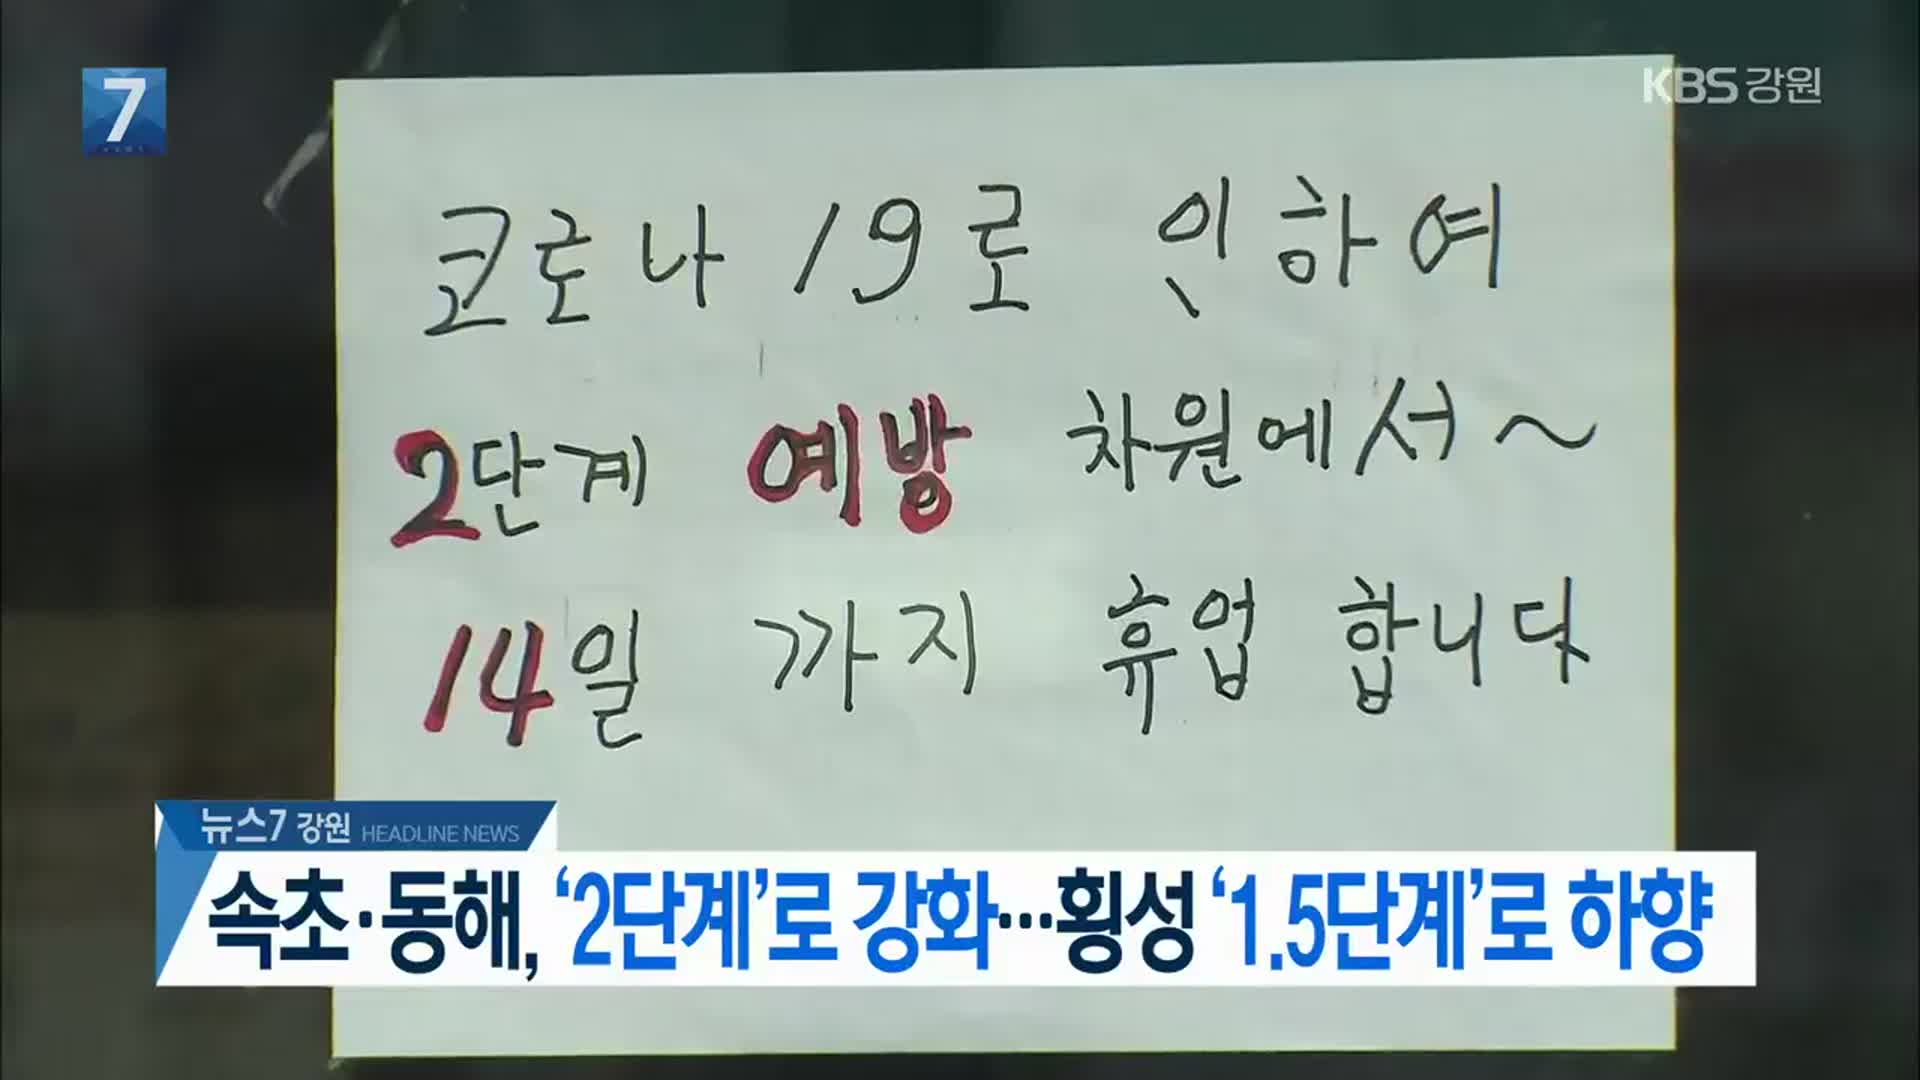 7
KBS 강원
코로나 19로 인하여
2단계 예방 차원에서~
14일 까지 휴업 합니다
뉴스7 강원 HEADLINE NEWS
속초·동해, ‘2단계’로 강화…횡성 ‘1.5단계’로 하향